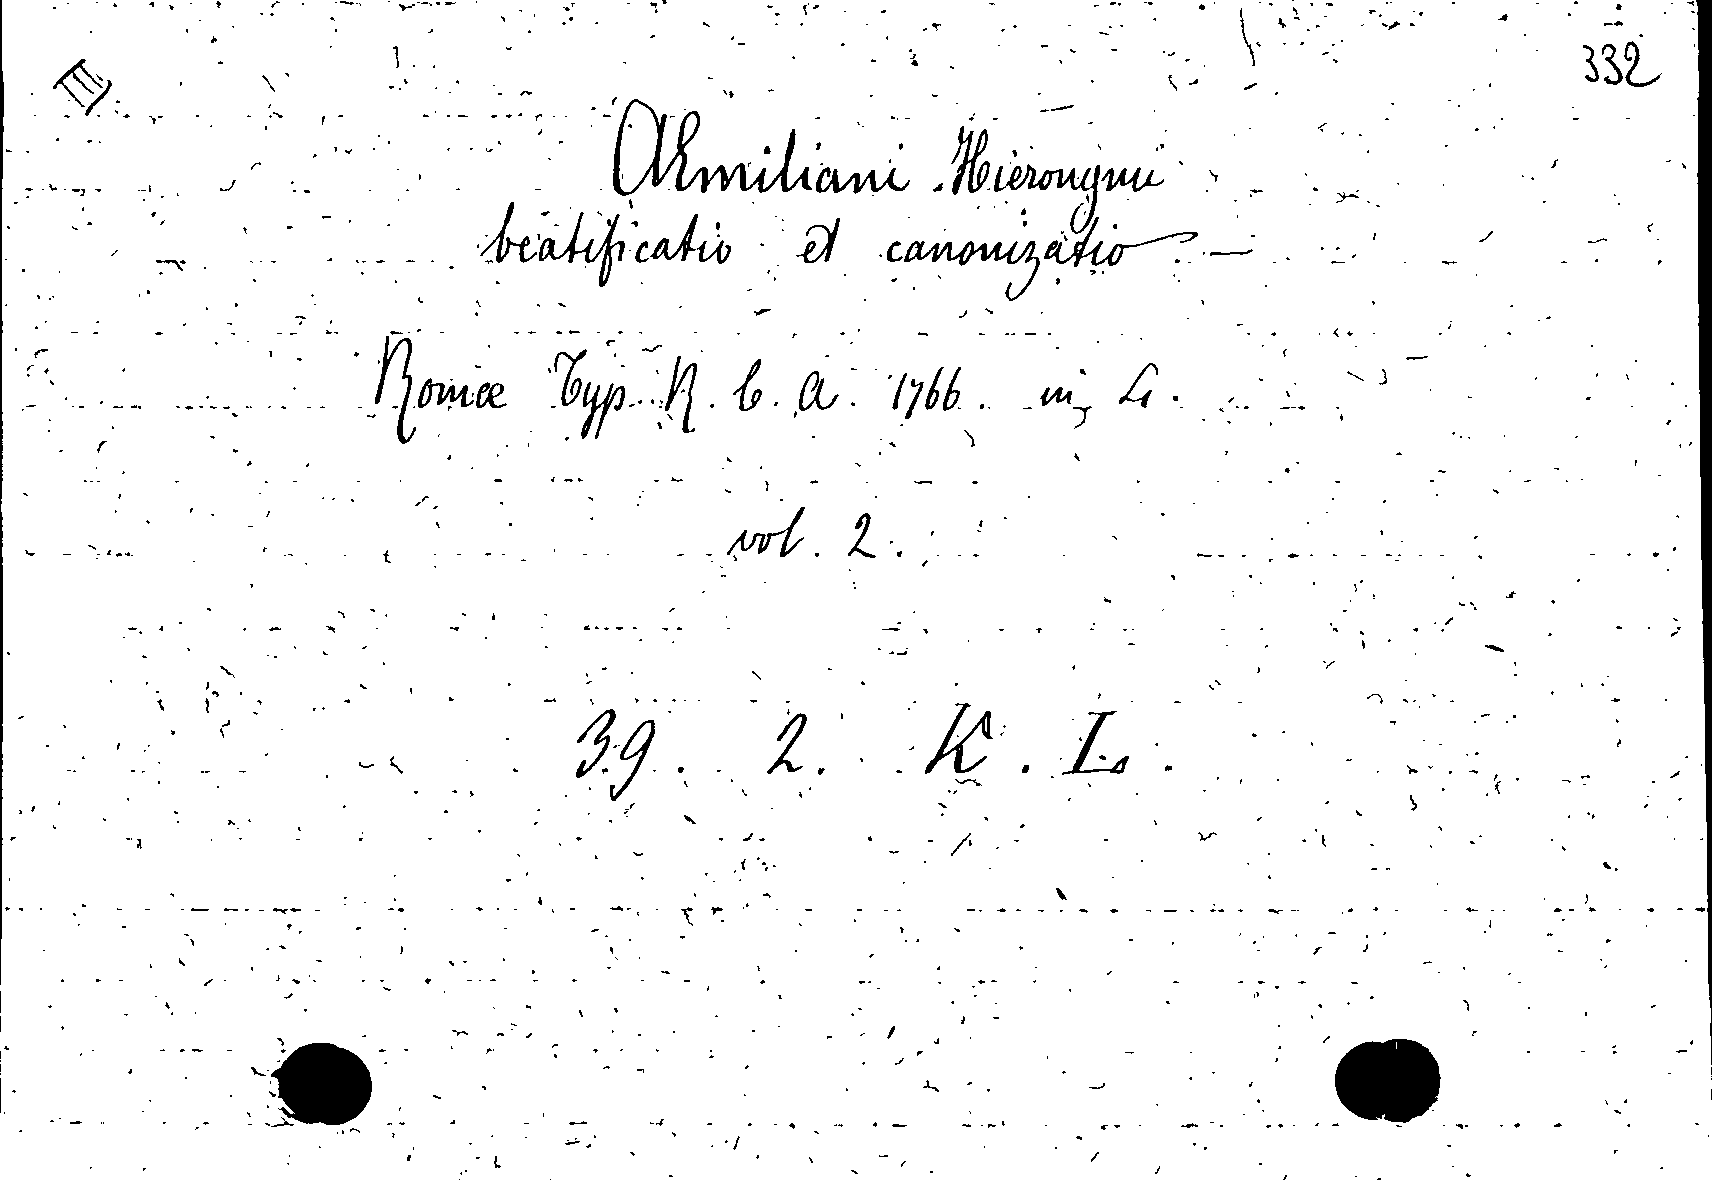 III
332
Æmiliani Hieronymi
beatificatio et canonizatio
Romæ Typ. R. C. A. 1766. in
vol. 2.
39. 2. K. L.